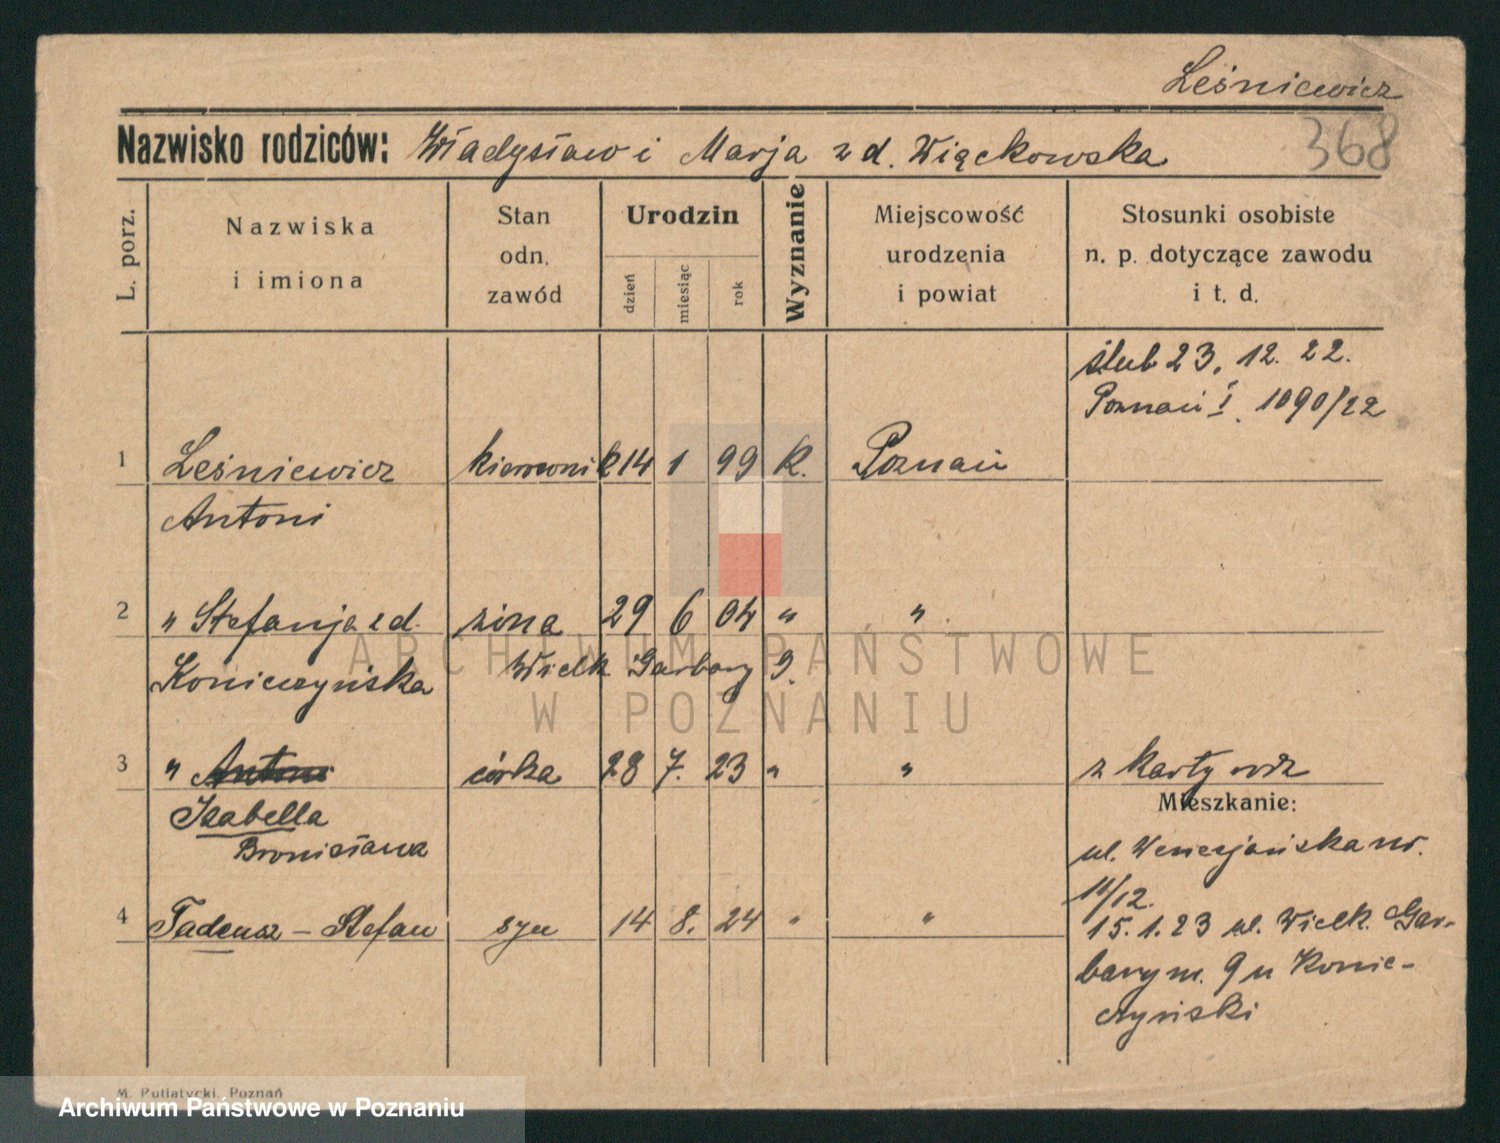 Leśniewicz
368
Nazwisko rodziców: Władysław i Marja z d. Więckowska
L. porz.
Nazwiska
i imiona
Stan
odn.
zawód
Urodzin
dzień
miesiąc
rok
Wyznanie
Miejscowość
urodzenia
i powiat
Stosunki osobiste
n. p. dotyczące zawodu
i t. d.
ślub 23. 12. 22.
Poznań I. 1090/22
1 Leśniewicz kierownik 14 1 99 k. Poznań
Antoni
2 " Stefanja z d. żona 29 6 04 " "
Konieczyńska Wielk Garbary 9.
3 " Antoni córka 28 7. 23 " " z karty rodz
Izabella
Bronisława
Mieszkanie:
ul. Wenecjańska nr.
11/12.
4 Tadeusz – Stefan syn 14 8. 24 " "
15. 1. 23 ul. Wielk. Gar-
bary m. 9 u Konie-
czyński
M. Putiatycki, Poznań
ARCHIWUM PAŃSTWOWE
W POZNANIU
Archiwum Państwowe w Poznaniu